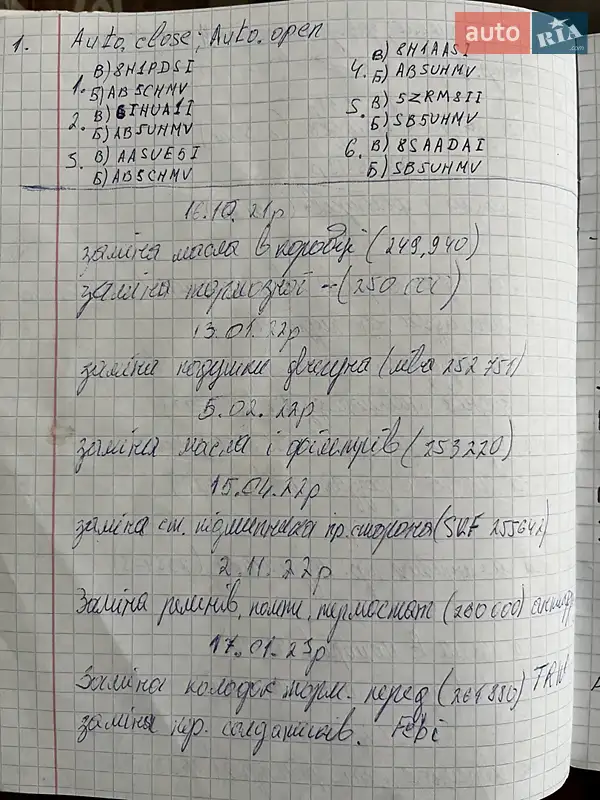 auto RIA.com
1. Auto. close; Auto. open
1. В) 8H1PDSI
Б) ABSCHMV
2. В) 6IHUA1I
Б) ABSUHMV
3. В) AASUESI
Б) ABSCHMV
4. В) 8H1AASI
Б) ABSUHMV
5. В) SZRM8II
Б) SBSUHMV
6. В) 8SAADAI
Б) SBSUHMV
16.10.21р
заміна масла в коробці (249,940)
заміна тормозної - (250 000)
13.01.22р
заміна подушки двигуна (ліва 252 751)
5.02.22р
заміна масла і фільтрів (253220)
15.04.22р
заміна ст. підшипника пр. сторона (SKF 255642)
2.11.22р
Заміна ременів, помпи, термостат (260 000)
17.01.23р
Заміна колодок торм. перед (261 880)
заміна пр. Febi